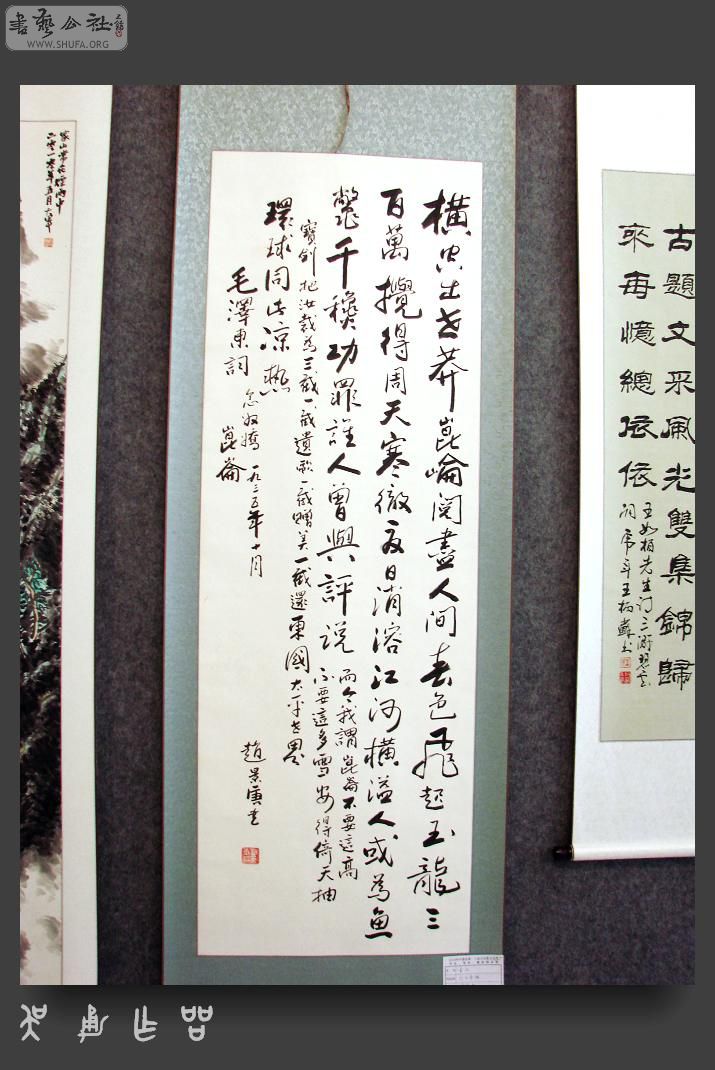 書藝公社
WWW.SHUFA.ORG
古題文采風光雙集錦歸
來每憶總依依
橫空出世莽崑崙閱盡人間春色飛起玉龍三
百萬攪得周天寒徹夏日消溶江河橫溢人或為魚
鱉千穐功罪誰人曾與評説
而今我謂崑崙不要這高
不要這多雪安得倚天抽
寶劍把汝裁為三截一截遺歐一截贈美一截還東國太平世界
環球同此凉熱
毛澤東詞 念奴嬌 一九三五年十月
崑崙
趙景寅書
家山常在煙雨中
二零一零年五月